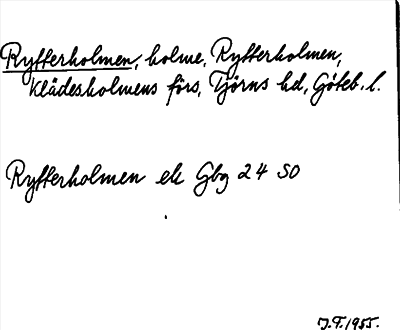 Rytterholmen, holme, Rytterholmen,
Klädesholmens förs, Tjörns hd, Göteb. l.
Rytterholmen ek Gbg 24 SO
J.F. 1955.